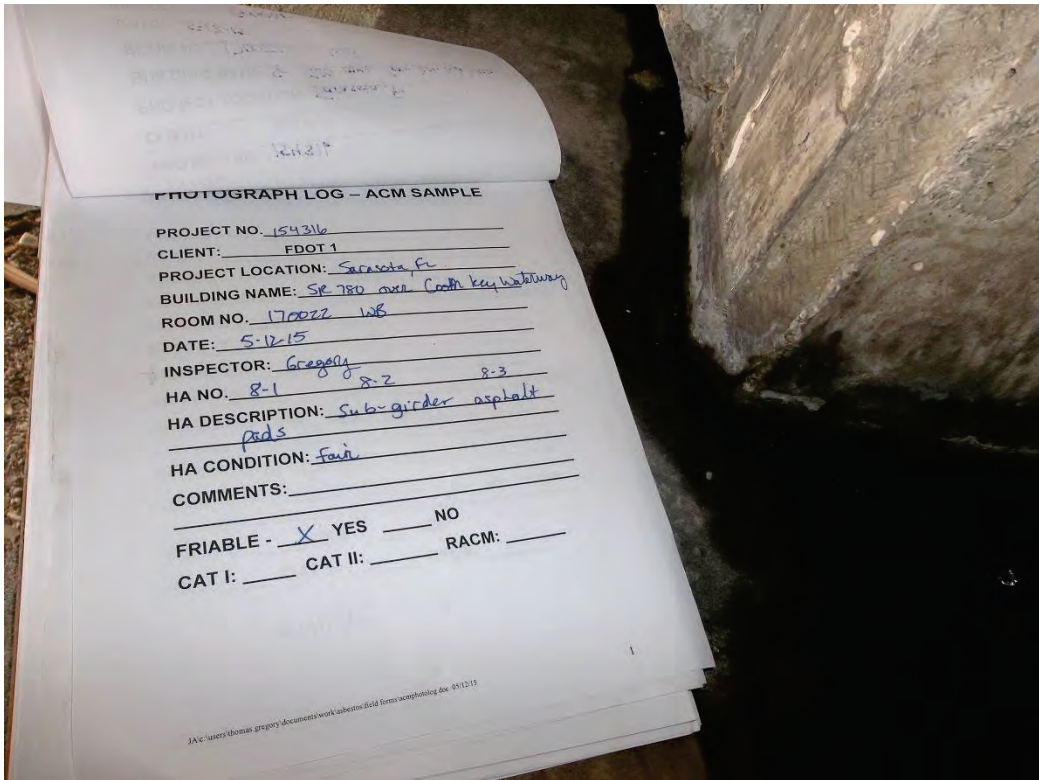 PHOTOGRAPH LOG – ACM SAMPLE
PROJECT NO. 154316
CLIENT: FDOT 1
PROJECT LOCATION: Sarasota, FL
BUILDING NAME: SR 780 over Coon Key Waterway
ROOM NO. 170022 WB
DATE: 5-12-15
INSPECTOR: Gregory
HA NO. 8-1 8-2 8-3
HA DESCRIPTION: Sub-girder asphalt
pads
HA CONDITION: fair
COMMENTS:
FRIABLE - X YES NO
CAT I: CAT II: RACM:
1
JA\c:\users\thomas gregory\documents\work\asbestos\field forms\acmphotolog.doc 05/12/15